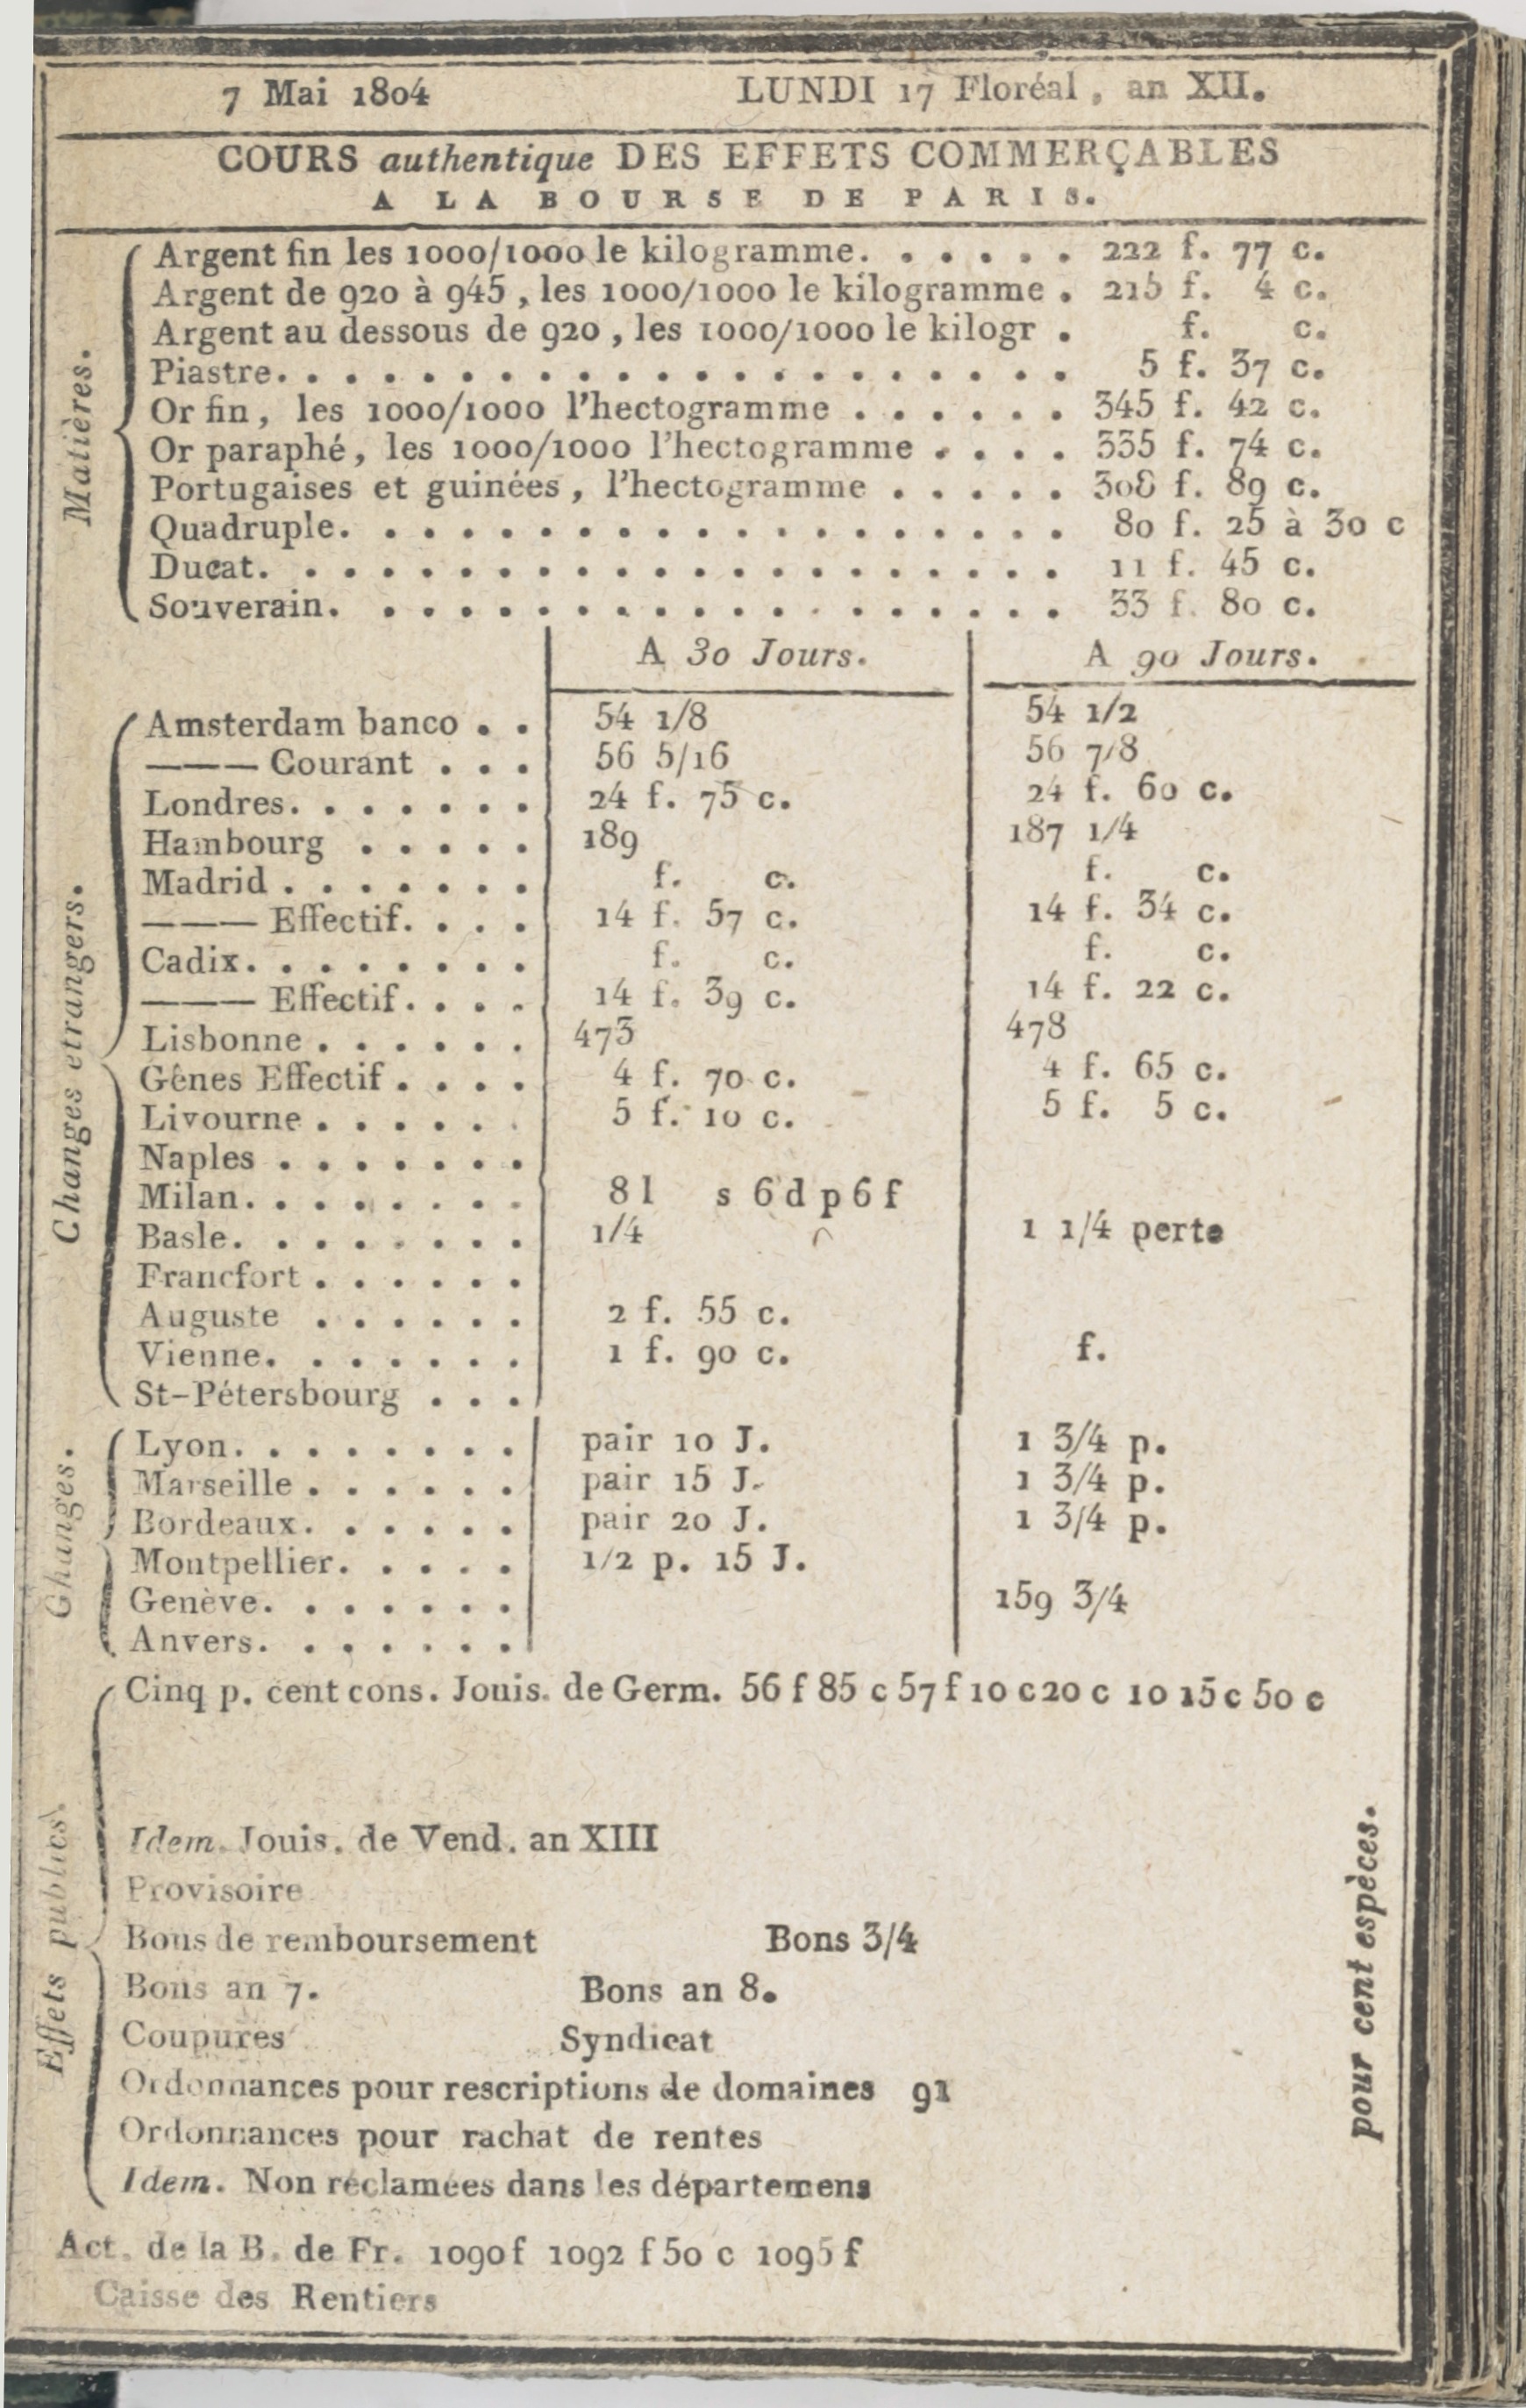 7 Mai 1804 LUNDI 17 Floréal, an XII.
COURS authentique DES EFFETS COMMERÇABLES
A LA BOURSE DE PARIS.
Matières.
Argent fin les 1000/1000 le kilogramme. . . . . . 222 f. 77 c.
Argent de 920 à 945, les 1000/1000 le kilogramme . 215 f. 4 c.
Argent au dessous de 920, les 1000/1000 le kilogr . f. c.
Piastre. . . . . . . . . . . . . . . . . . . . . 5 f. 37 c.
Or fin, les 1000/1000 l'hectogramme . . . . . . 345 f. 42 c.
Or paraphé, les 1000/1000 l'hectogramme . . . . 335 f. 74 c.
Portugaises et guinées, l'hectogramme . . . . . 308 f. 89 c.
Quadruple. . . . . . . . . . . . . . . . . . . 80 f. 25 à 30 c
Ducat. . . . . . . . . . . . . . . . . . . . . 11 f. 45 c.
Souverain. . . . . . . . . . . . . . . . . . . 33 f. 80 c.
A 30 Jours. A 90 Jours.
Changes etrangers.
Amsterdam banco . . 54 1/8 54 1/2
——— Courant . . . 56 5/16 56 7/8
Londres. . . . . . . 24 f. 75 c. 24 f. 60 c.
Hambourg . . . . . 189 187 1/4
Madrid . . . . . . . f. c. f. c.
——— Effectif. . . . 14 f. 57 c. 14 f. 34 c.
Cadix. . . . . . . . f. c. f. c.
——— Effectif. . . . 14 f. 39 c. 14 f. 22 c.
Lisbonne . . . . . . 473 478
Gênes Effectif . . . . 4 f. 70 c. 4 f. 65 c.
Livourne . . . . . . 5 f. 10 c. 5 f. 5 c.
Naples . . . . . . .
Milan. . . . . . . . 8 l s 6 d p 6 f
Basle. . . . . . . . 1/4 1 1/4 perte
Francfort . . . . . .
Auguste . . . . . . 2 f. 55 c.
Vienne. . . . . . . 1 f. 90 c. f.
St-Pétersbourg . . .
Changes.
Lyon. . . . . . . . pair 10 J. 1 3/4 p.
Marseille . . . . . . pair 15 J. 1 3/4 p.
Bordeaux. . . . . . pair 20 J. 1 3/4 p.
Montpellier. . . . . 1/2 p. 15 J.
Genève. . . . . . . 159 3/4
Anvers. . . . . . .
Effets publics.
Cinq p. cent cons. Jouis. de Germ. 56 f 85 c 57 f 10 c 20 c 10 15 c 50 c
Idem. Jouis. de Vend. an XIII
Provisoire
Bons de remboursement Bons 3/4
Bons an 7. Bons an 8.
Coupures Syndicat
Ordonnances pour rescriptions de domaines 91
Ordonnances pour rachat de rentes
Idem. Non réclamées dans les départemens
pour cent espèces.
Act. de la B. de Fr. 1090 f 1092 f 50 c 1095 f
Caisse des Rentiers